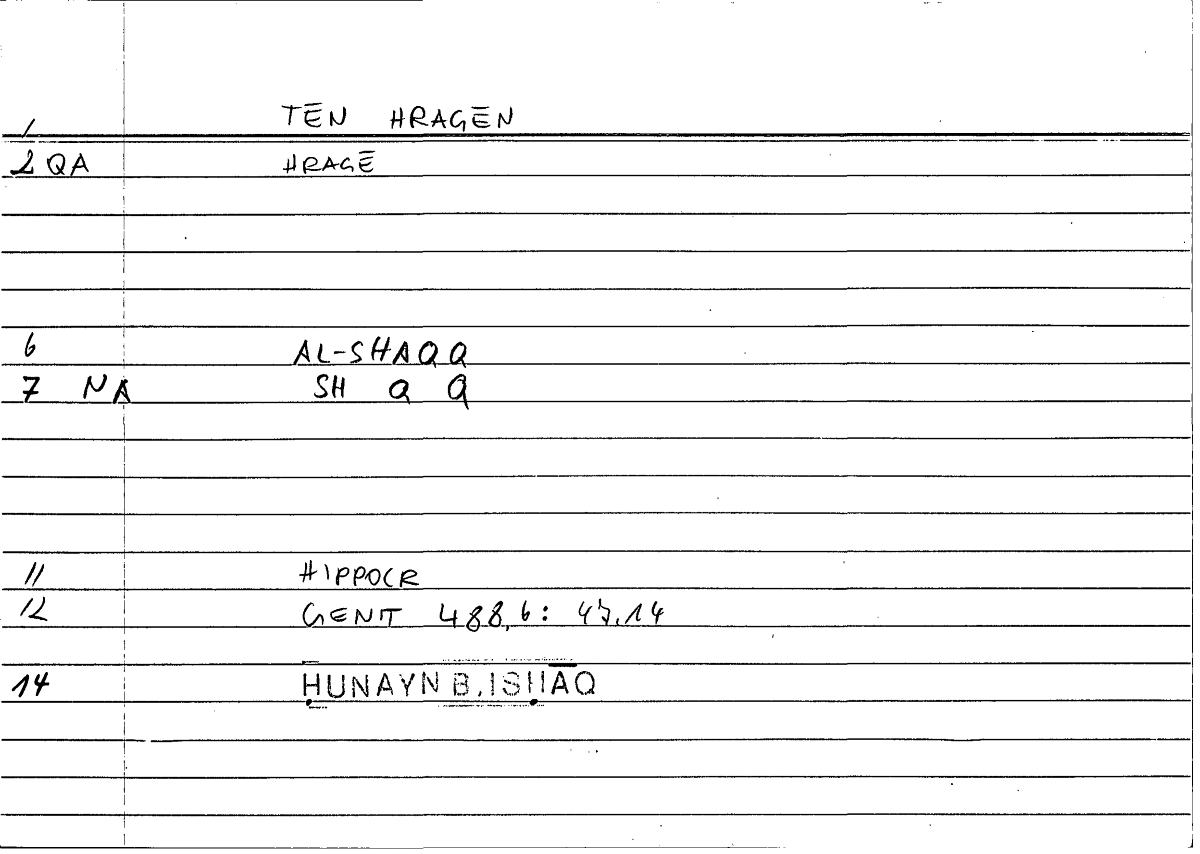 1 TĒN HRAGĒN
2 QA HRAGĒ
6 AL-SHAQQ
7 NA SH Q Q
11 HIPPOCR
12 GENIT 488,6: 47.14
14 ḤUNAYN B. ISḤĀQ